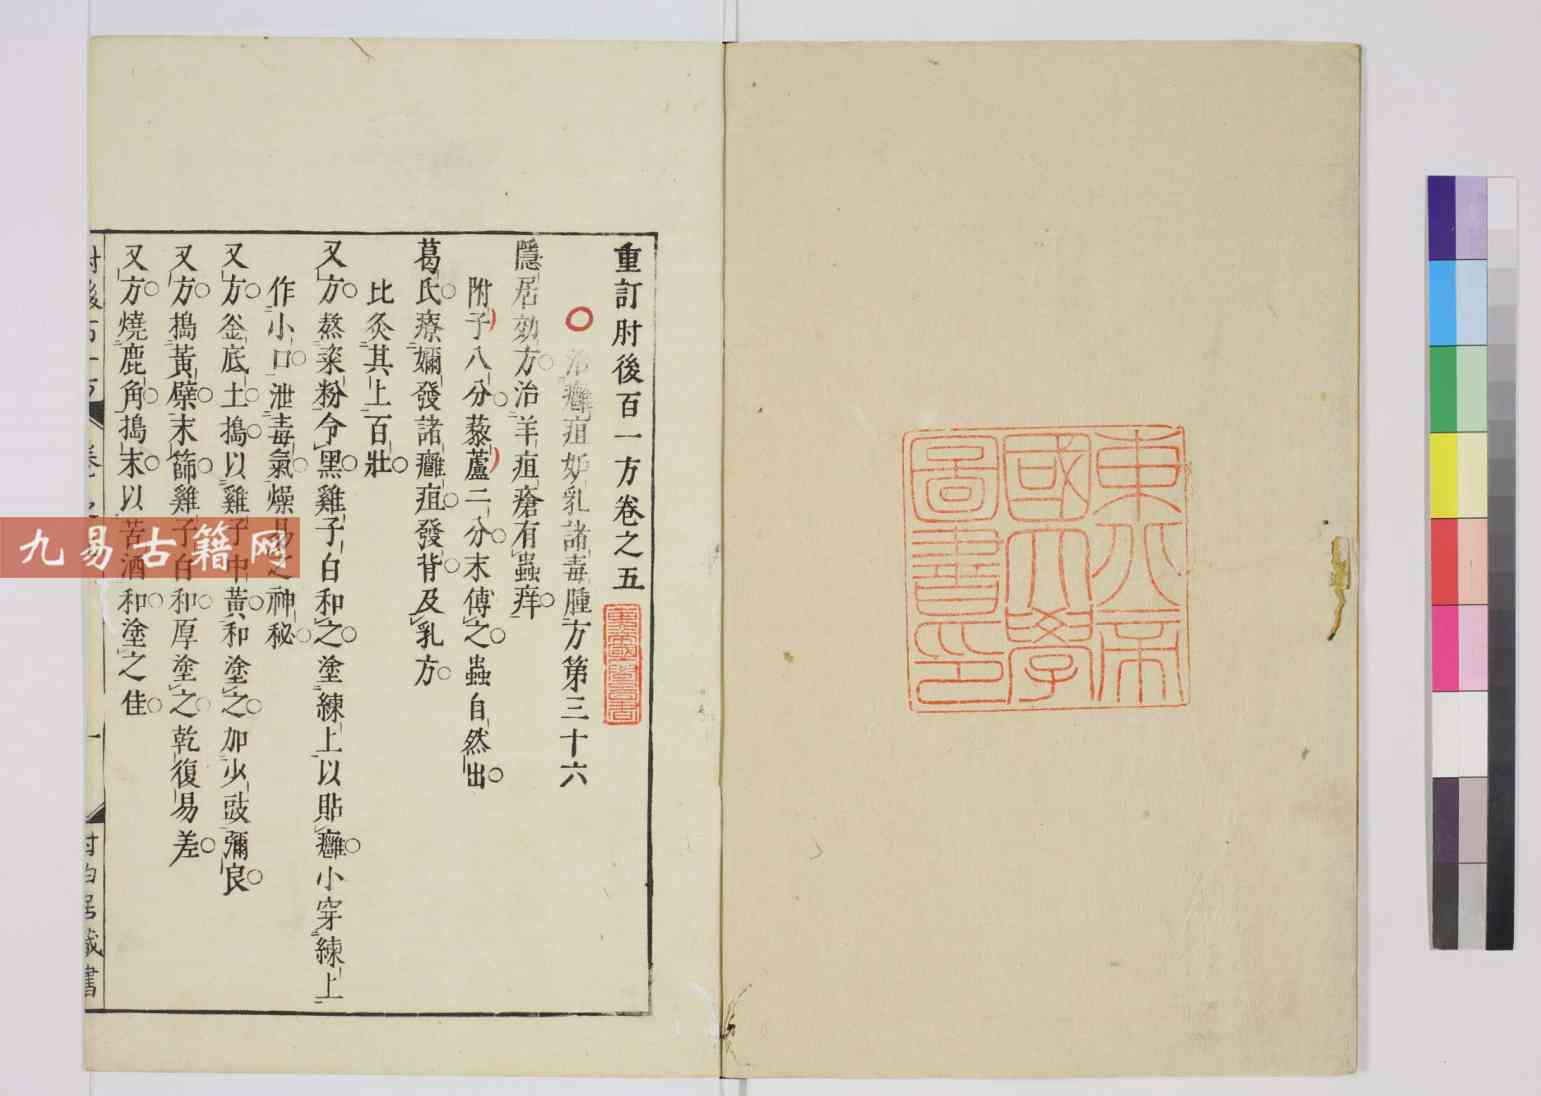 東京帝
國大學
圖書印
重訂肘後百一方卷之五
治癰疽妬乳諸毒腫方第三十六
隱居効方治羊疽瘡有蟲痒
附子八分藜蘆二分末傅之蟲自然出
葛氏療嬭發諸癰疽發背及乳方
比灸其上百壯
又方熬粢粉令黑雞子白和之塗練上以貼癰小穿練上
作小口泄毒氣燥易之神秘
又方釜底土搗以雞子中黃和塗之加少豉彌良
又方搗黃檗末篩雞子白和厚塗之乾復易差
又方燒鹿角搗末以苦酒和塗之佳
九易古籍网